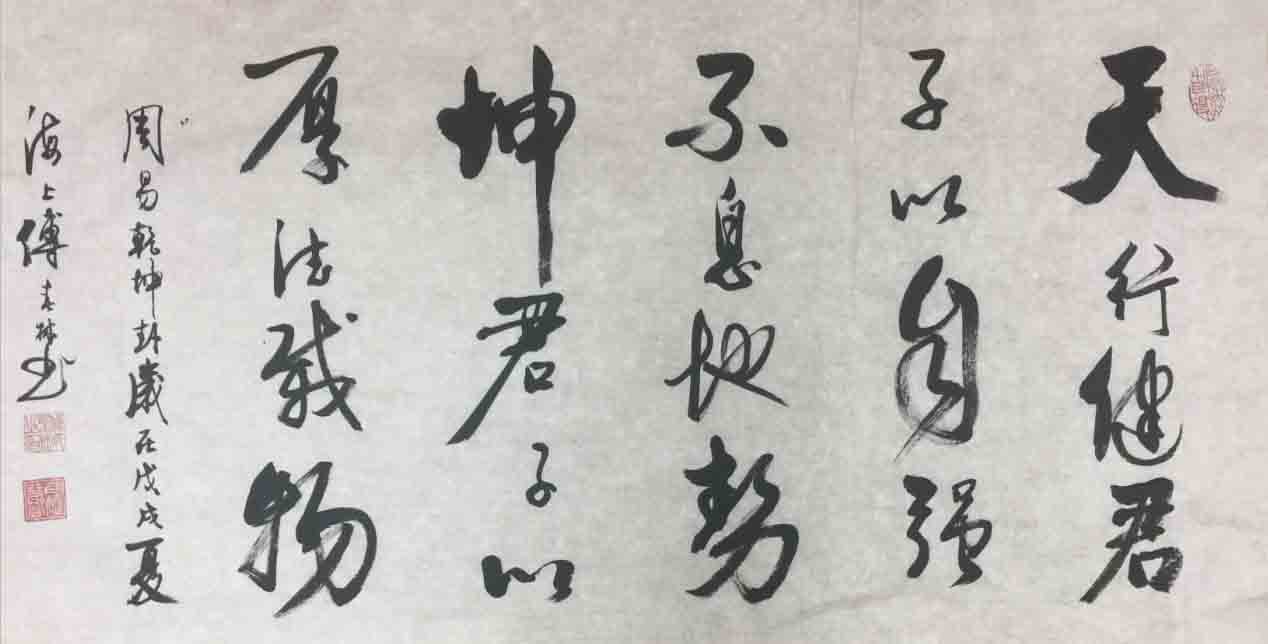 天行健君
子以自强
不息地势
坤君子以
厚德载物
周易乾坤卦岁在戊戌夏
海上傅书